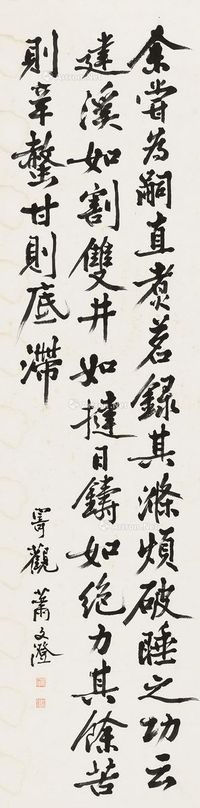 余嘗為嗣直煮茗錄其滌煩破睡之功云
建溪如割雙井如撻日鑄如絕力其餘苦
則辛螫甘則底滯
寄觀 蕭文澄